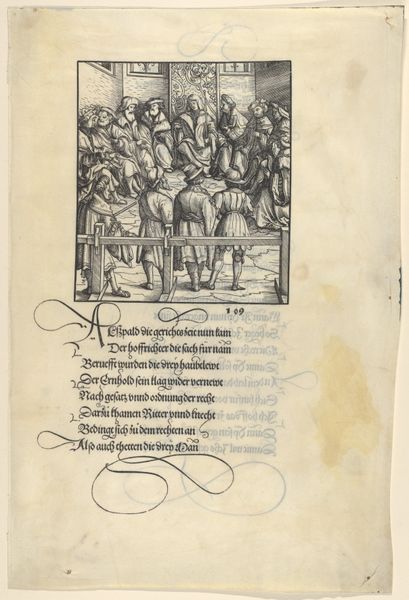 109
Als pald die gerichts zeit nun kam
Der hoffrichter die sach fur nam
Beruefft wurden die drey haubtlewt
Der Ernhold sein klag wider vernewt
Nach gesatz vnnd ordnung der recht
Dartzu khamen Ritter vnnd knecht
Bedingt sich zu dem rechten an
Also auch thetten die drey Man